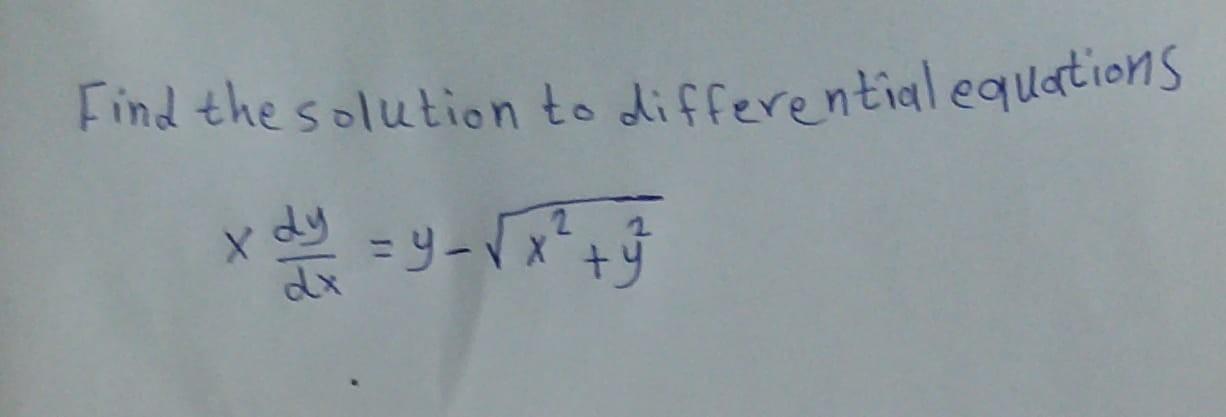 Find the solution to differential equations
x dy/dx = y - √(x² + y²)